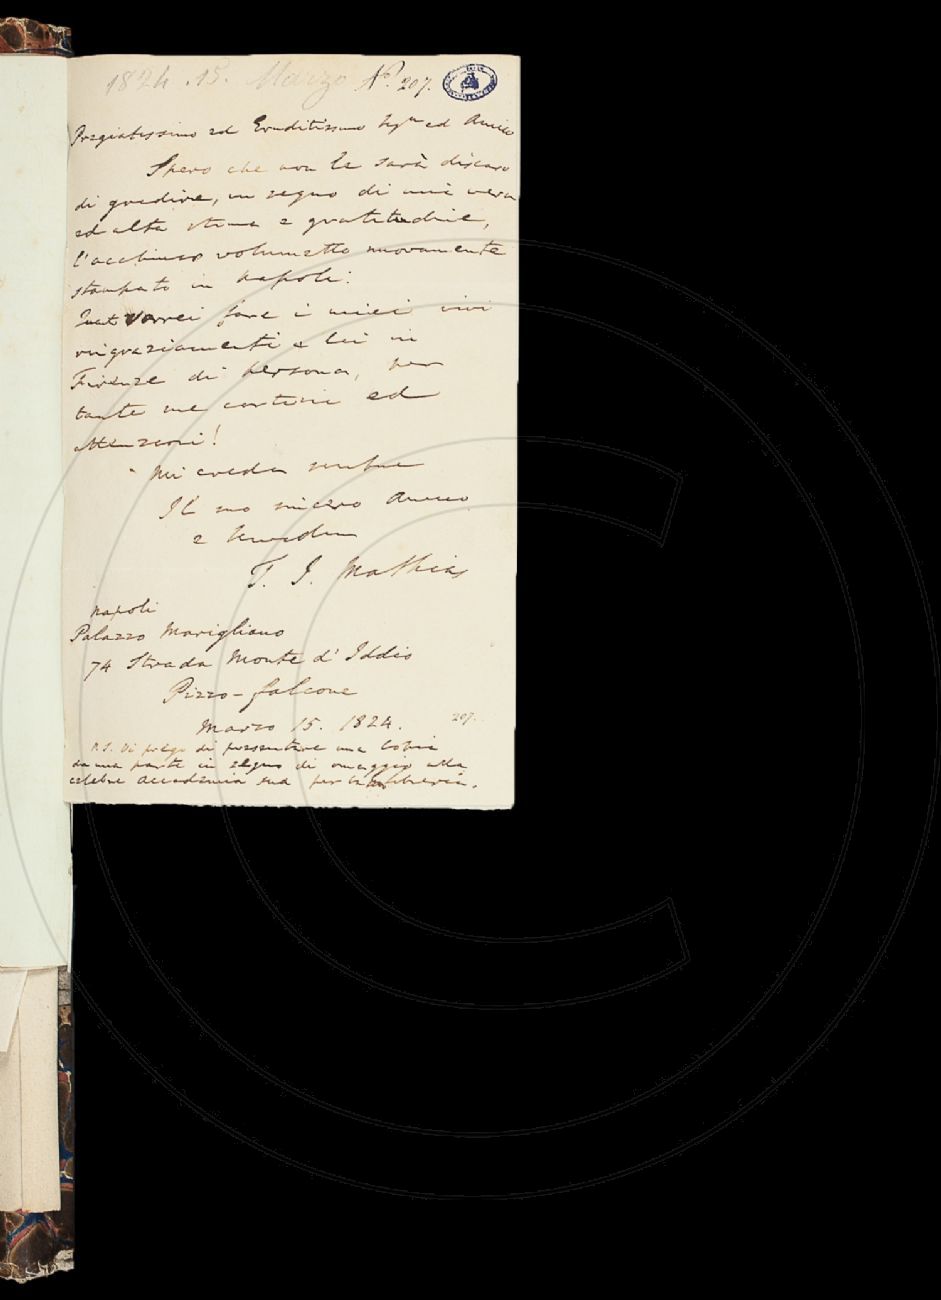 1824. 15. Marzo N.º 207.
Pregiatissimo ed Eruditissimo Sigr. ed Amico
Spero che non le sarà discaro
di gradire, in segno di mia vera
ed alta stima e gratitudine,
l'accluso volumetto nuovamente
stampato in Napoli.
vorrei fare i miei vivi
ringraziamenti a lei in
Firenze di persona, per
tante sue cortesie ed
attenzioni!
Mi creda sempre
Il suo sincero Amico
e Servidore
T. J. Mathias
Napoli
Palazzo Marigliano
74 Strada Monte d'Iddio
Pizzo-falcone
Marzo 15. 1824.
207.
P.S. Vi prego di presentare una copia
da mia parte in segno di omaggio alla
celebre Accademia sua per la libreria.